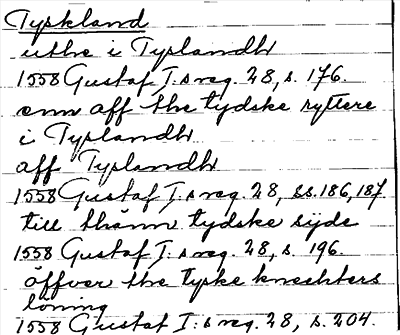 Tyskland
uthe i Tyslandh
1558 Gustaf I:s reg. 28, s. 176.
enn aff the tydske ryttere
i Tyslandh
aff Tyslandh
1558 Gustaf I:s reg. 28, ss. 186, 187
till thänn tydske sijde
1558 Gustaf I:s reg. 28, s. 196.
öffver the tyske knechters
löning
1558 Gustaf I:s reg. 28, s. 204.